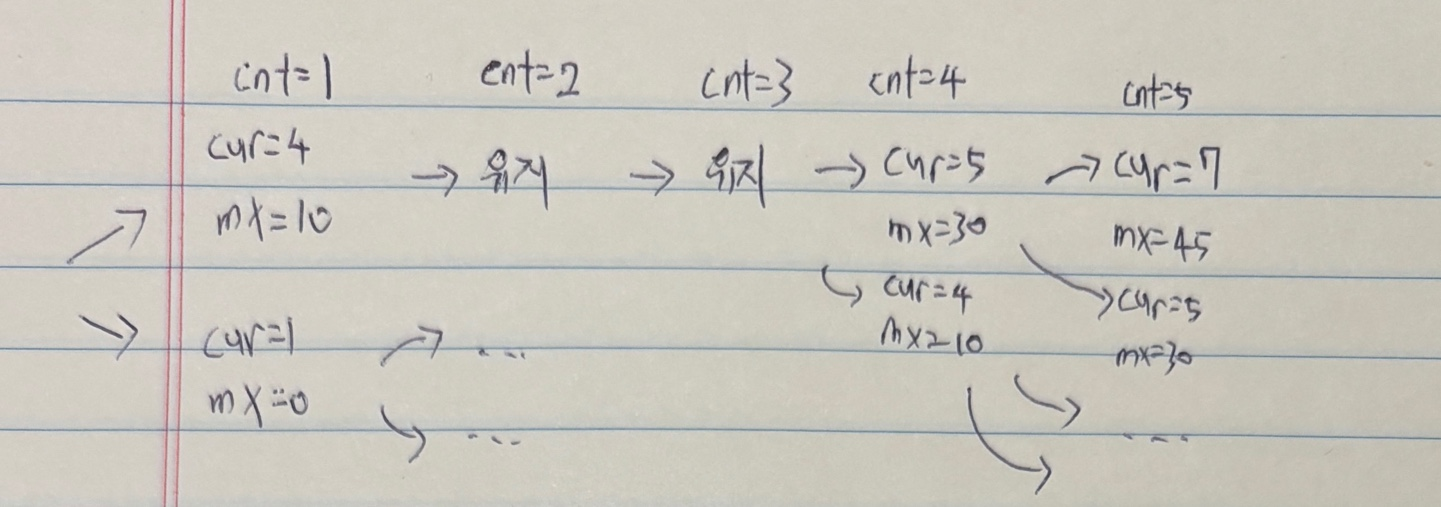 cnt=1 cnt=2 cnt=3 cnt=4 cnt=5
cur=4 → 유지 → 유지 → cur=5 → cur=7
mx=10 mx=30 mx=45
cur=4 cur=5
mx=10 mx=30
cur=1 ...
mx=0
... ...